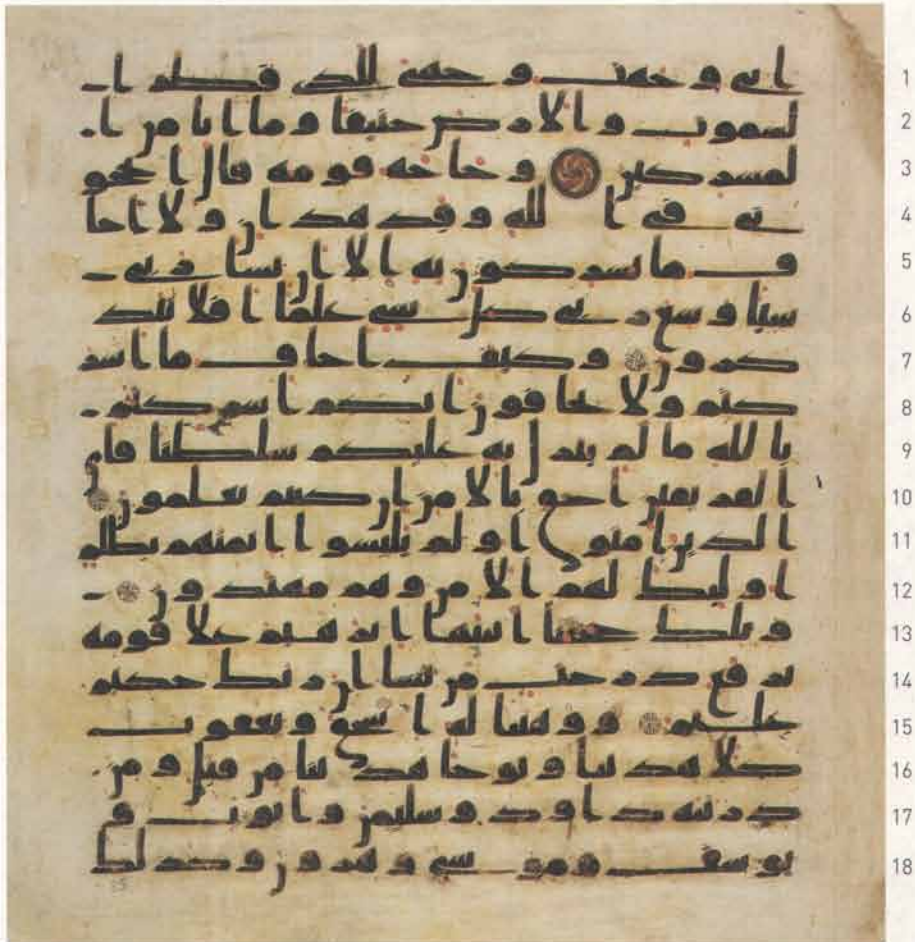 انى وجهت وجهى للذى فطر ا 1
لسموت والارض حنيفا وما انا من ا 2
لمشركين وحاجه قومه قال اتحجو 3
نى فى الله وقد هدين ولا اخا 4
ف ما تشركون به الا ان يشا ربى 5
شيا وسع ربى كل شى علما افلا تتذ 6
كرون وكيف اخاف ما اشر 7
كتم ولا تخافون انكم اشركتم 8
بالله ما لم ينزل به عليكم سلطنا فاى 9
الفريقين احق بالامن ان كنتم تعلمون 10
الذين امنوا ولم يلبسوا ايمنهم بظلم 11
اوليك لهم الامن وهم مهتدون 12
وتلك حجتنا اتينها ابرهيم على قومه 13
نرفع درجت من نشا ان ربك حكيم 14
عليم ووهبنا له اسحق ويعقوب 15
كلا هدينا ونوحا هدينا من قبل ومن 16
ذريته داود وسليمن وايوب و 17
يوسف وموسى وهرون وكذلك 18